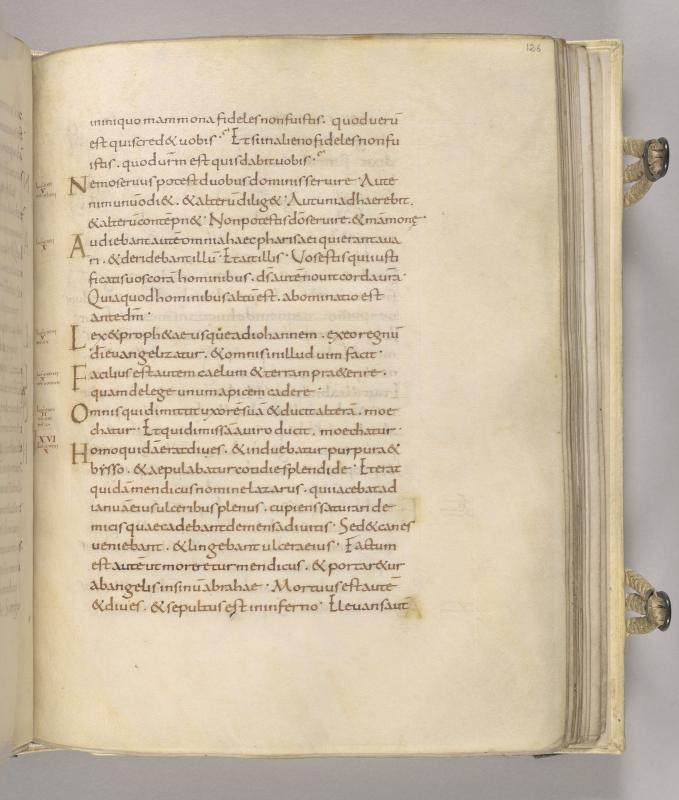 126
iniquo mammona fideles non fuistis. quod uerū
est quis cred& uobis. Et si in alieno fideles non fu
istis. quod urm̄ est quis dabit uobis.
Nemo seruus potest duobus dominis seruire. Aute
nim unū odi&. & alterū dilig&. Aut uni adhaerebit.
& alterū contēpn&. Non potestis dō seruire. & mamonę.
Audiebant autē omnia haec pharisaei qui erant aua
ri. & deridebant illū. Et ait illis. Uos estis qui iusti
ficatis uos corā hominibus. ds̄ autē nouit corda ur̄a.
Quia quod hominibus altū est. abominatio est
ante dm̄.
Lex & proph&ae usque ad iohannem. ex eo regnū
dī euangelizatur. & omnis in illud uim facit.
Facilius est autem caelum & terram praeterire.
quam de lege unum apicem cadere.
Omnis qui dimittit uxorē suā & ducit alterā. moe
chatur. Et qui dimissā a uiro ducit. moechatur.
XVI
Homo quidā erat diues. & induebatur purpura &
bysso. & aepulabatur cotidie splendide. Et erat
quidā mendicus nomine lazarus. qui iacebat ad
ianuā eius ulceribus plenus. cupiens saturari de
micis quae cadebant de mensa diuitis. Sed & canes
ueniebant. & lingebant ulcera eius. Factum
est autē ut moreretur mendicus. & portar&ur
ab angelis in sinū abrahae. Mortuus est autē
& diues. & sepultus est in inferno. Eleuans autē